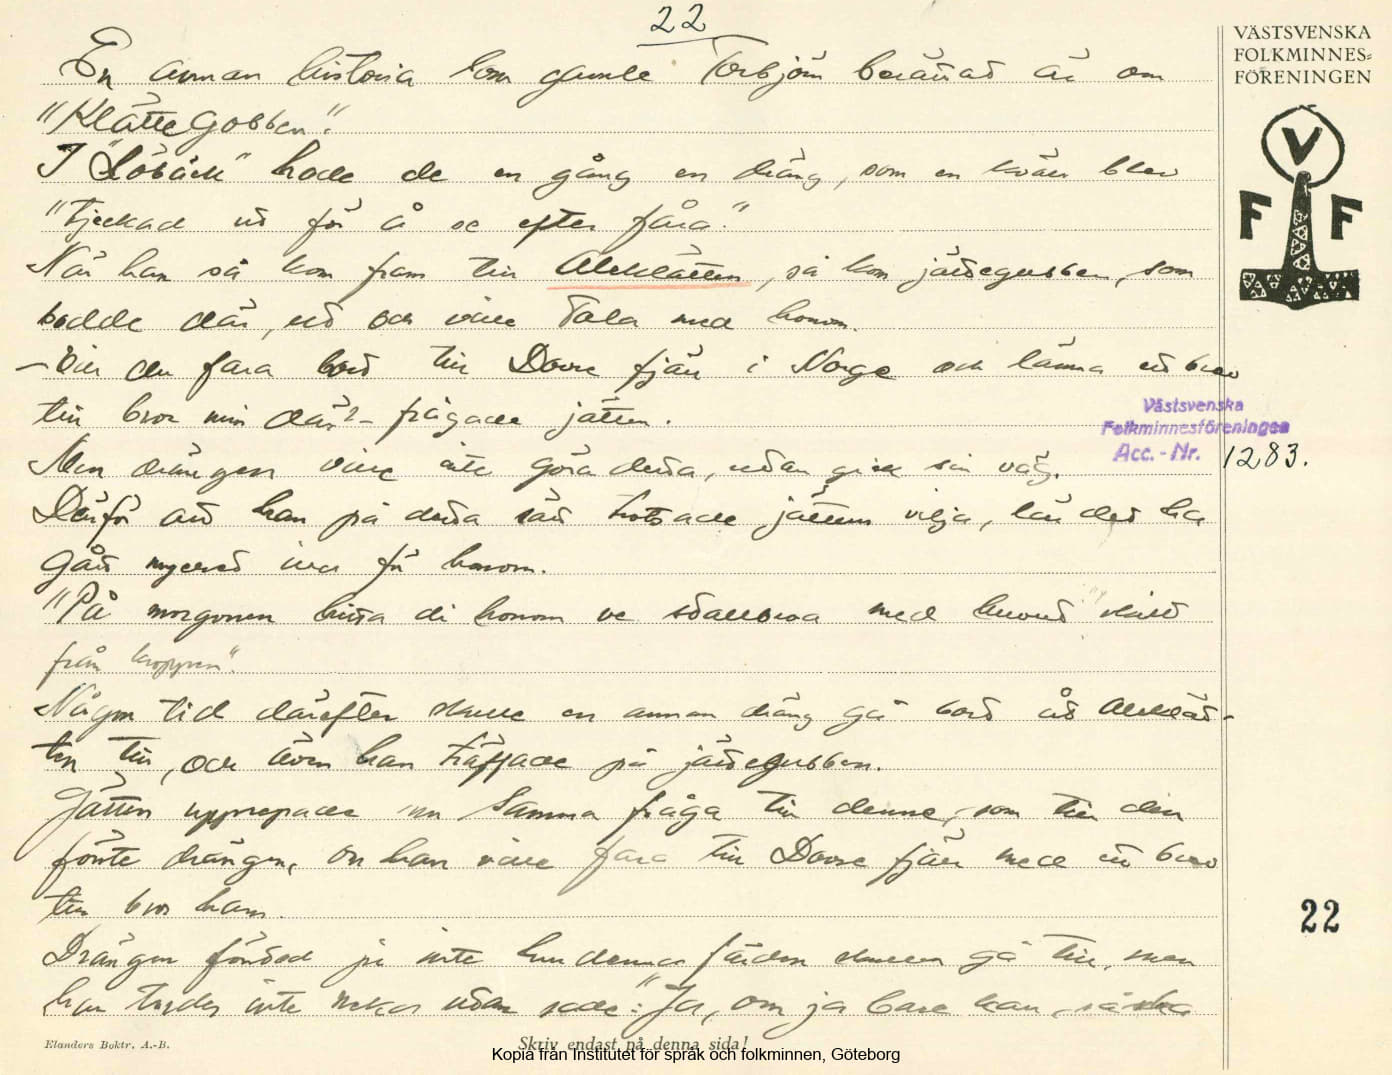 22
VÄSTSVENSKA
FOLKMINNES-
FÖRENINGEN
V
F F
En annan historia som gamle Torbjörn berättat är om
"Klätte Gobben".
I "Löbäck" hade de en gång en dräng, som en kväll blev
"tjeckad ut för å se efter fåra."
När han så kom fram till Aleklätten, så kom jättegubben, som
bodde där, ut och ville tala med honom.
– Vill du fara bort till Dovre fjäll i Norge och lämna ett brev
till bror min där? – frågade jätten.
Västsvenska
Folkminnesföreningen
Acc.-Nr. 1283.
Men drängen ville inte göra detta, utan gick sin väg.
Därför att han på detta sätt trotsade jättens vilja, lär det ha
gått mycket illa för honom.
"På morgonen hitta di honom ve stallbroa med huvud skilt
från kroppen".
Någon tid därefter skulle en annan dräng gå bort åt Aleklät-
ten till, och även han träffade på jättegubben.
Jätten upprepade nu samma fråga till denne, som till den
förste drängen, om han ville fara till Dovre fjäll med ett brev
till bror hans.
Drängen förstod ju inte hur denna färden skulle gå till, men
han tordes inte neka utan sade: "Ja, om ja bare kan, så ska
22
Elanders Boktr. A.-B.
Skriv endast på denna sida!
Kopia från Institutet för språk och folkminnen, Göteborg